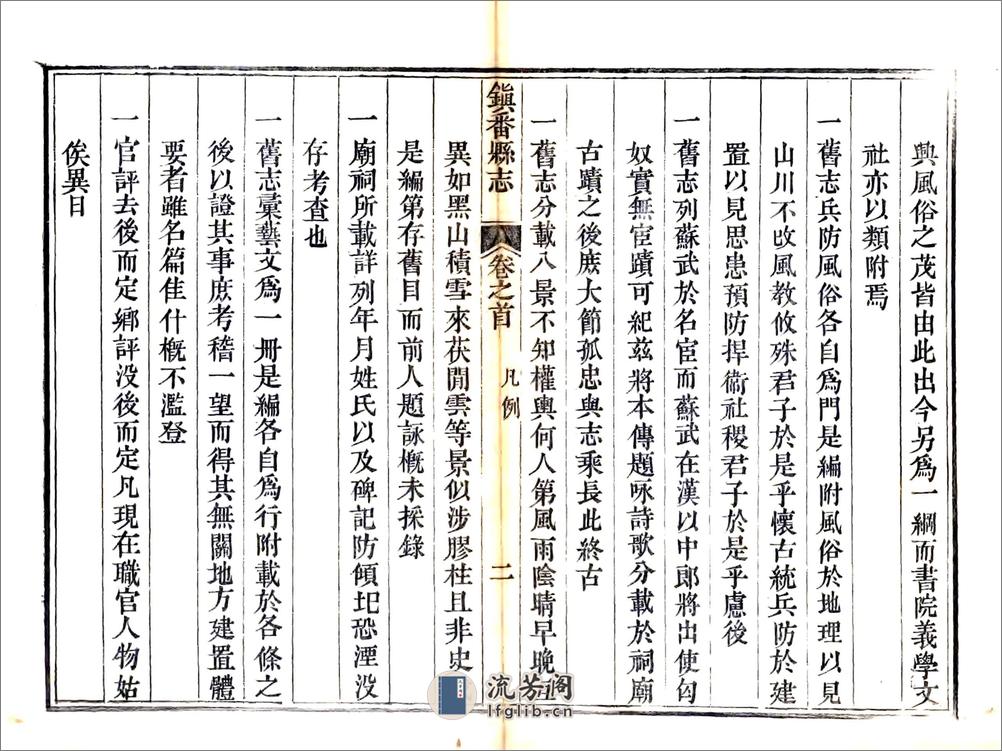 興風俗之茂皆由此出今另爲一綱而書院義學文
社亦以類附焉
一舊志兵防風俗各自爲門是編附風俗於地理以見
山川不改風教攸殊君子於是乎懷古統兵防於建
置以見思患預防捍衛社稷君子於是乎慮後
一舊志列蘇武於名宦而蘇武在漢以中郎將出使匈
奴實無宦蹟可紀茲將本傳題咏詩歌分載於祠廟
古蹟之後庶大節孤忠與志乘長此終古
一舊志分載八景不知權輿何人第風雨陰晴早晚
鎭番縣志 卷之首 凡例 二
異如黑山積雪來茯閒雲等景似涉膠柱且非史
是編第存舊目而前人題詠槪未採錄
一廟祠所載詳列年月姓氏以及碑記防傾圯恐湮没
存考查也
一舊志彙藝文爲一冊是編各自爲行附載於各條之
後以證其事庶考稽一望而得其無關地方建置體
要者雖名篇佳什槪不濫登
一官評去後而定鄕評没後而定凡現在職官人物姑
俟異日
流芳阁
lfglib.cn